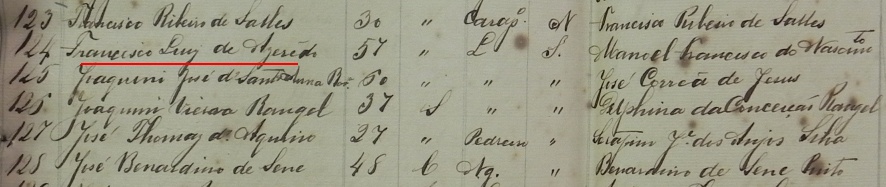 123 Francisco Ribeiro de Salles 30 " Carapº. N Francisco Ribeiro de Salles
124 Francisco Luiz de Azeredo 57 " L S. Manoel Francisco do Nascimto
125 Joaquim José de Santa Anna 60 " " " José Corrêa de Jesus
126 Joaquim Vieira Rangel 37 S " " Delphina da Conceição Rangel
127 José Thomaz d. Aquino 27 " Pedreiro " Serafim Je. dos Anjos Silva
128 José Benardino de Sene 48 C Ng. " Benardino de Sene Pinto